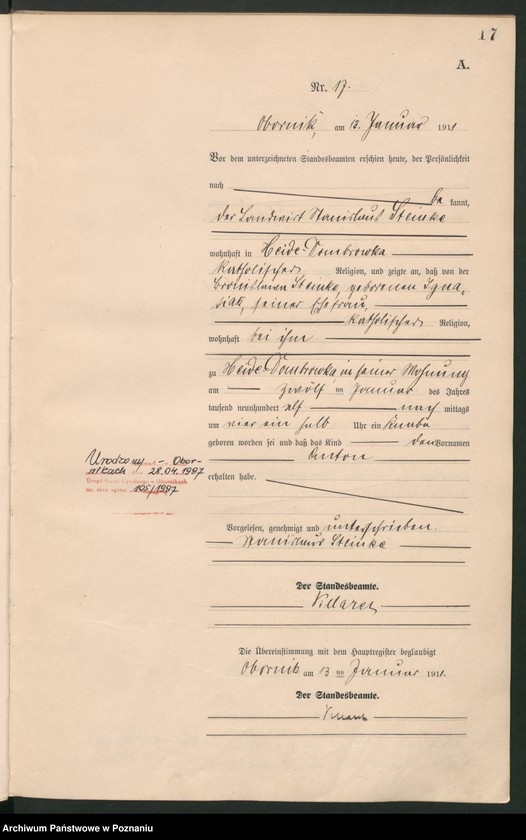 17
A.
Nr. 17.
Obornik, am 13. Januar 1911
Vor dem unterzeichneten Standesbeamten erschien heute, der Persönlichkeit
nach be kannt,
der Landwirt Stanislaus Steinke
wohnhaft in Heide-Dombrowka
katholischer Religion, und zeigte an, daß von der
Bronislawa Steinke, geborenen Igna-
siak, seiner Ehefrau
katholischer Religion,
wohnhaft bei ihm
zu Heide-Dombrowka, in seiner Wohnung
am zwölf ten Januar des Jahres
tausend neunhundert elf nach mittags
um vier ein halb Uhr ein Knabe
geboren worden sei und daß das Kind den Vornamen
Anton
erhalten habe.
Vorgelesen, genehmigt und unterschrieben.
Stanislaus Steinke
Der Standesbeamte.
Die Übereinstimmung mit dem Hauptregister beglaubigt
Obornik am 13 ten Januar 1911.
Der Standesbeamte.
28.04.1987
105/1987
Archiwum Państwowe w Poznaniu